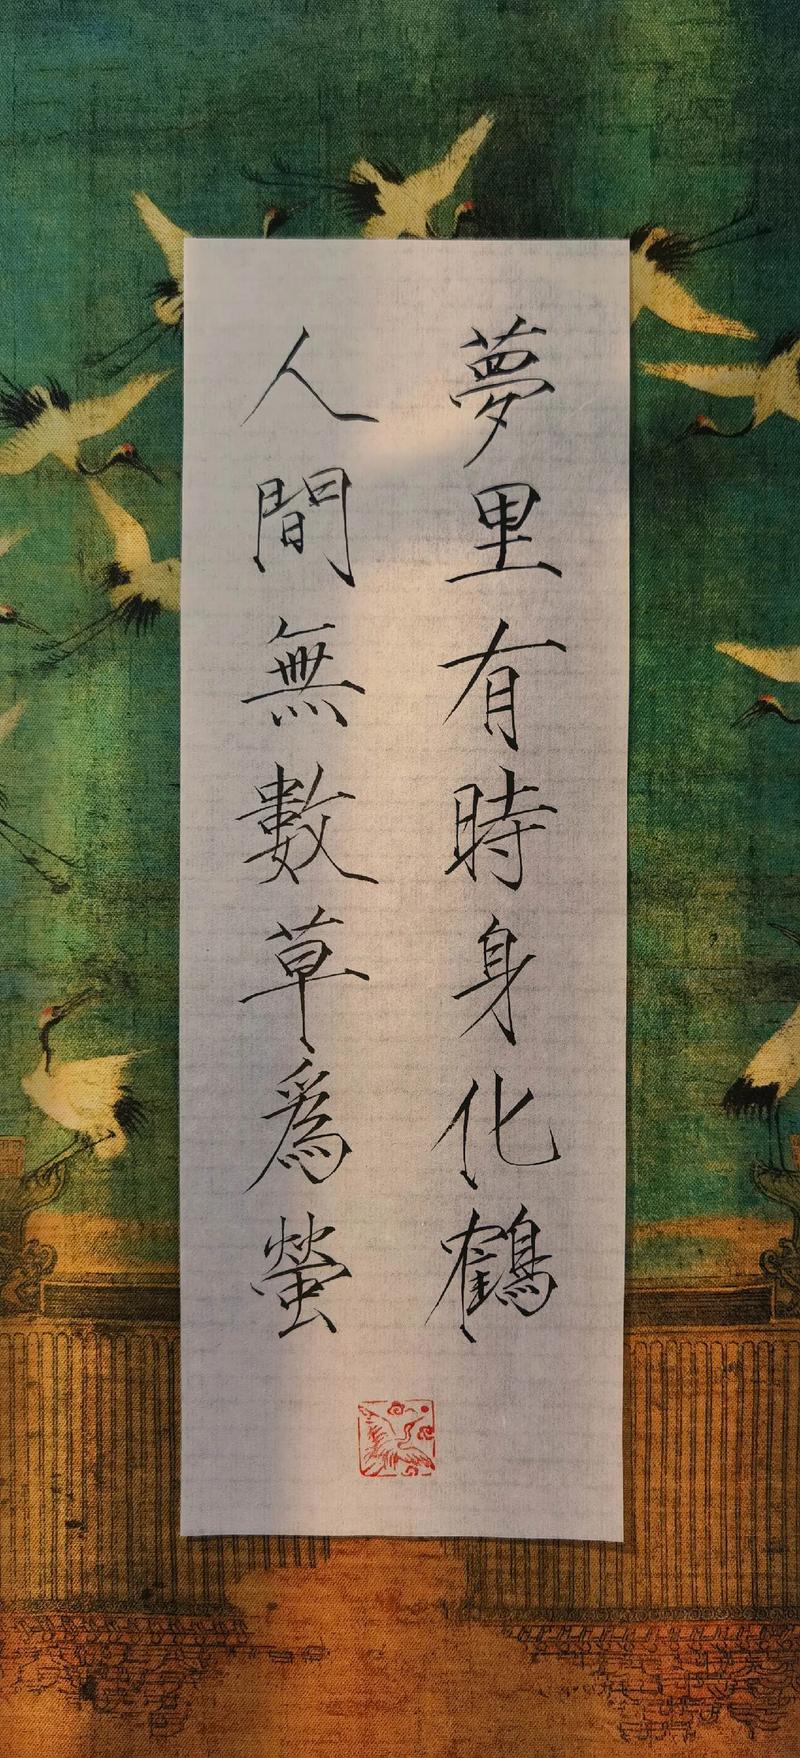 夢里有時身化鶴
人間無數草為螢